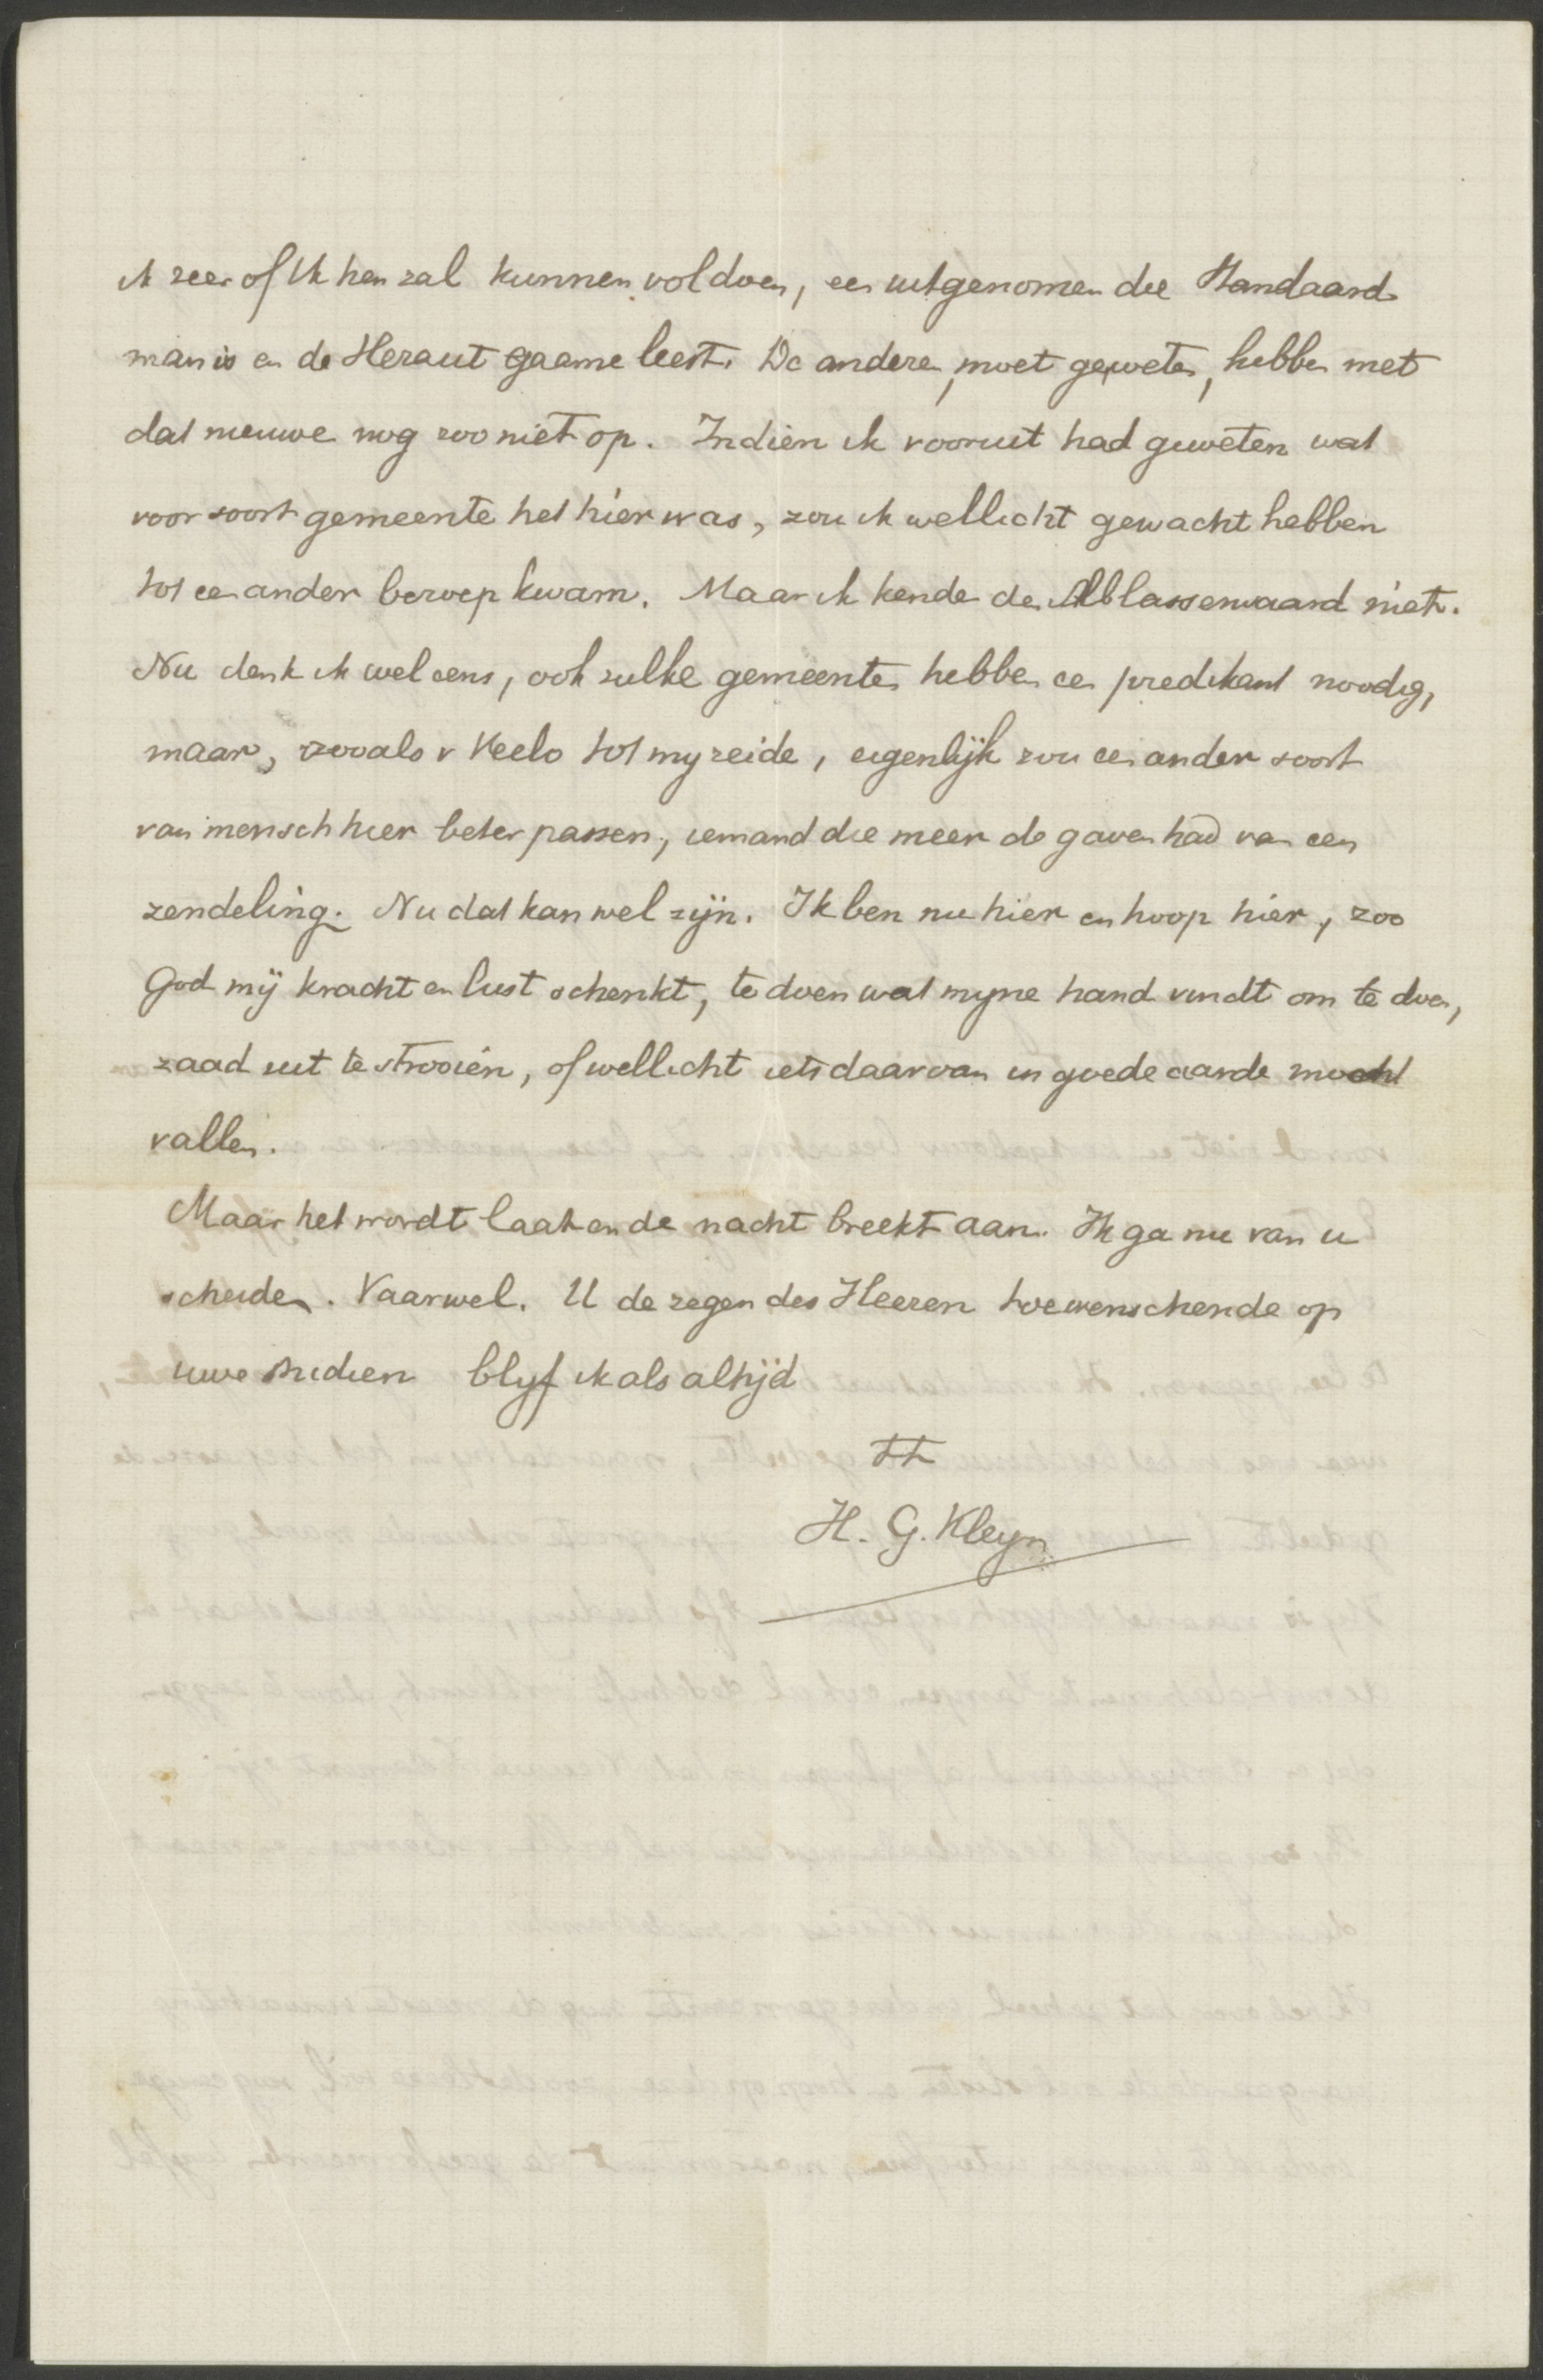 ik zeer of ik hen zal kunnen voldoen, een uitgenomen die Standaard
man is en de Heraut gaarne leest. De anderen, moet ge weten, hebben met
dat nieuwe nog zoo niet op. Indien ik vooruit had geweten wat
voor soort gemeente het hier was, zou ik wellicht gewacht hebben
tot een ander beroep kwam. Maar ik kende den Alblasserwaard niet.
Nu denk ik wel eens, ook zulke gemeenten hebben een predikant noodig,
maar, zooals v Veelo tot my zeide, eigenlijk zou een ander soort
van mensch hier beter passen, iemand die meer de gaven had van een
zendeling. Nu dat kan wel zijn. Ik ben nu hier en hoop hier, zoo
God mij kracht en lust schenkt, te doen wat myne hand vindt om te doen,
zaad uit te strooien, of wellicht iets daarvan in goede aarde mocht
vallen.
Maar het wordt laat en de nacht breekt aan. Ik ga nu van u
scheiden. Vaarwel. U de zegen des Heeren toewenschende op
uwe studien blyf ik als altijd
tt
H. G. Kleyn